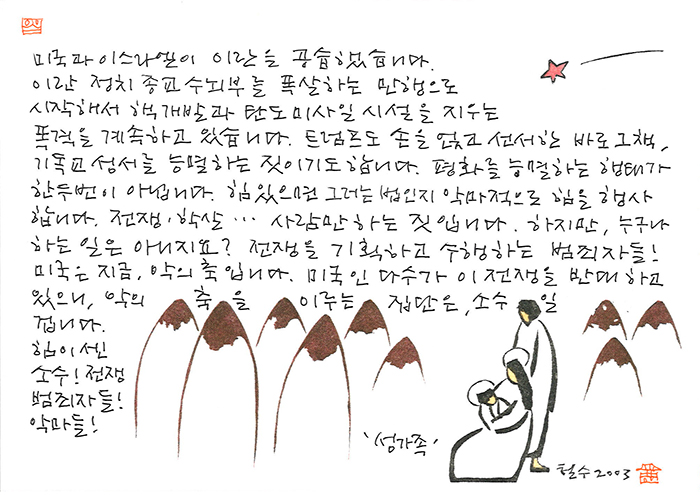 미국과 이스라엘이 이란을 공습했습니다.
이란 정치 종교 수뇌부를 폭살하는 만행으로
시작해서 핵개발과 탄도미사일 시설을 지우는
폭격을 계속하고 있습니다. 트럼프도 손을 얹고 선서한 바로 그 책,
기독교 성서를 능멸하는 짓이기도 합니다. 평화를 능멸하는 행태가
한두번이 아닙니다. 힘있으면 그러는 법인지 악마적으로 힘을 행사
합니다. 전쟁·학살… 사람만 하는 짓입니다. 하지만, 누구나
하는 일은 아니지요? 전쟁을 기획하고 수행하는 범죄자들!
미국은 지금, 악의 축입니다. 미국인 다수가 이 전쟁을 반대하고
있으니, 악의 축을 이루는 집단은, 소수일
겁니다.
힘이 센
소수! 전쟁
범죄자들!
악마들!
'성가족'
철수 2003